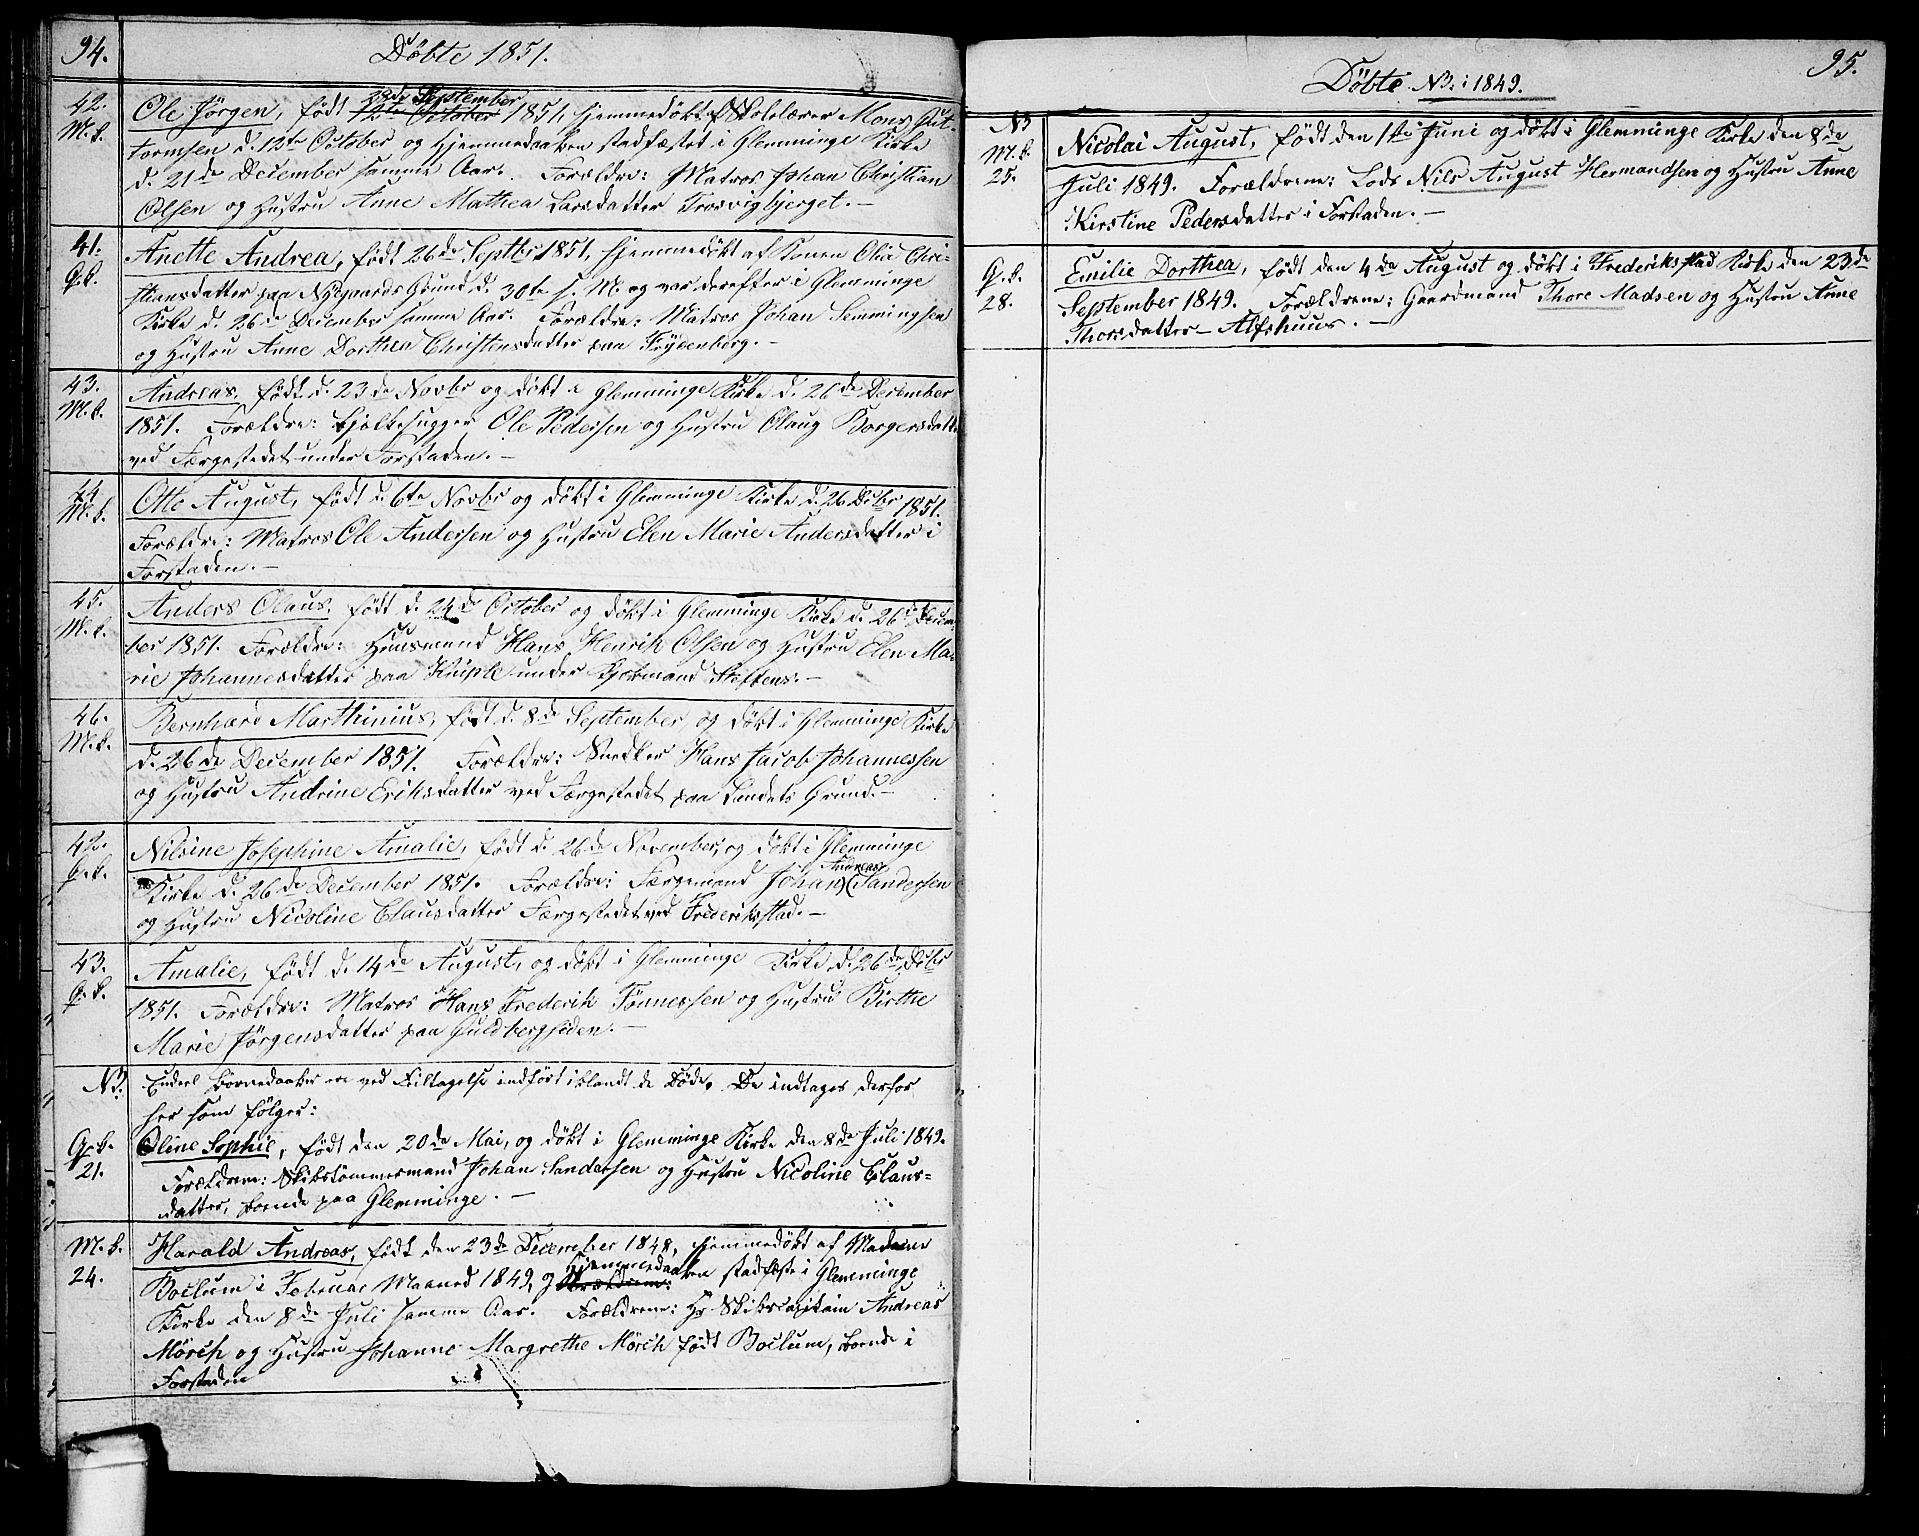 94.
Döbte 1851.
42.
M. k.
Ole Jörgen, født 23de September 12te October 1851, hjemmedøbt af Skolelærer Mons Gut-
tormsen d. 12te October og Hjemmedaaben stadfæstet i Glemminge Kirke
d. 21de December samme Aar. Forældre: Matros Johan Christian
Olsen og Hustru Anne Mathea Larsdatter Trosvigbjerget. –
41.
G. k.
Anette Andrea, født 26de Septbr 1851, hjemmedøbt af Konen Olia Chri-
stiansdatter paa Nygaards Grund d. 30te s. M og var derefter i Glemminge
Kirke d. 26de December samme Aar. Forældre: Matros Johan Semmingsen
og Hustru Anne Dorthea Christensdatter paa Frydenberg. –
43.
M. k.
Andreas, født d. 23de Novbr og døbt i Glemminge Kirke d. 26de December
1851. Forældre: Bjelkehugger Ole Pedersen og Hustru Olaug Borgersdatter
ved Færgestedet under Forstaden. –
44
M. k.
Otto August, født d. 6te Novbr og døbt i Glemminge Kirke d. 26 Dcbr 1851.
Forældre: Matros Ole Andersen og Hustru Elen Marie Andersdatter i
Forstaden. –
45.
M. k.
Anders Olaus, født d. 24de October og døbt i Glemminge Kirke d. 26de Decem-
ber 1851. Forældre: Huusmand Hans Henrik Olsen og Hustru Elen Ma-
rie Johannesdatter paa Kniple under
46.
M. k.
Bernhard Marthinius, født d. 8de September, og døbt i Glemminge Kirke
d. 26de December 1851. Forældre: Snedker Hans Jacob Johannessen
og Hustru Andrine Eriksdatter ved Færgestedet paa Landets Grund. –
42.
G. k.
Nilsine Josephine Amalie, født d. 26de November, og døbt i Glemminge
Kirke d. 26de December 1851. Forældre: Færgemand Johan Andreas Sandersen
og Hustru Nicoline Clausdatter Færgestedet ved Frederikstad. –
43.
G. k.
Amalie, født d. 14de August, og døbt i Glemminge Kirke d. 26de Decbr
1851. Forældre: Matros Hans Frederik Tönnessen og Hustru Birthe
Marie Jörgensdatter paa Guldbergsiden. –
NB.
Endeel Barnedaaber ere ved Feiltagelse indført iblandt de Døde. De indtages derfor
her som følger:
G. k.
21.
Oline Sophie, født den 20de Mai, og døbt i Glemminge Kirke den 8de Juli 1849.
Forældrene: Skibstømmermand Johan Sandersen og Hustru Nicoline Claus-
datter, boende paa Glemminge. –
M. k.
24.
Harald Andreas, født den 23de December 1848, hjemmedøbt af Madame
Boclum i Februar Maaned 1849, og Hjemmedaaben stadfæstet i Glemminge
Kirke den 8de Juli samme Aar. Forældrene: Hr Skibscapitain Andreas
Mörch og Hustru Johanne Margrethe Mörch født Boclum, boende i
Forstaden
95.
Döbte NB: 1849.
NB
M. k.
25.
Nicolai August, født den 1ste Juni og døbt i Glemminge Kirke den 8de
Juli 1849. Forældrene: Lods Nils August Hermandsen og Hustru Anne
Kirstine Pedersdatter i Forstaden. –
G. k.
28.
Emilie Dorthea, født den 4de August og døbt i Frederikstad Kirke den 23de
September 1849. Forældrene: Gaardmand Thore Madsen og Hustru Anne
Thorsdatter – Alfshuus. –